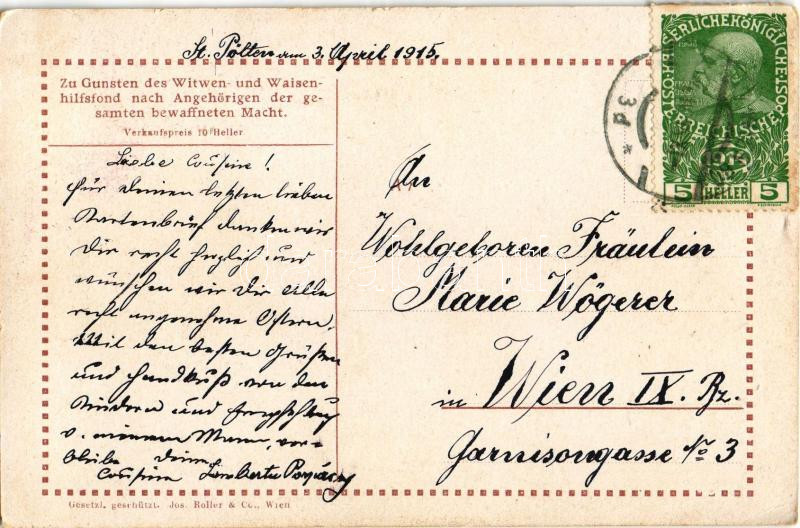 St. Pölten am 3. April 1915.
Zu Gunsten des Witwen- und Waisen-
hilfsfond nach Angehörigen der ge-
samten bewaffneten Macht.
Verkaufspreis 10 Heller
Liebe Cousine!
Für Deinen letzten lieben
Kartenbrief danken wir
Dir recht herzlich und
wünschen wir Dir alle
recht angenehme Ostern.
Mit den besten Grüßen
und Handkuß von den
Kindern und Empfehlung
v. meinem Mann, ver-
bleibe Deine
Cousine
Gesetzl. geschützt. Jos. Roller & Co., Wien
An
Wohlgeboren Fräulein
Marie Wögerer
in Wien IX. Bz.
Garnisongasse No 3
5 HELLER 5